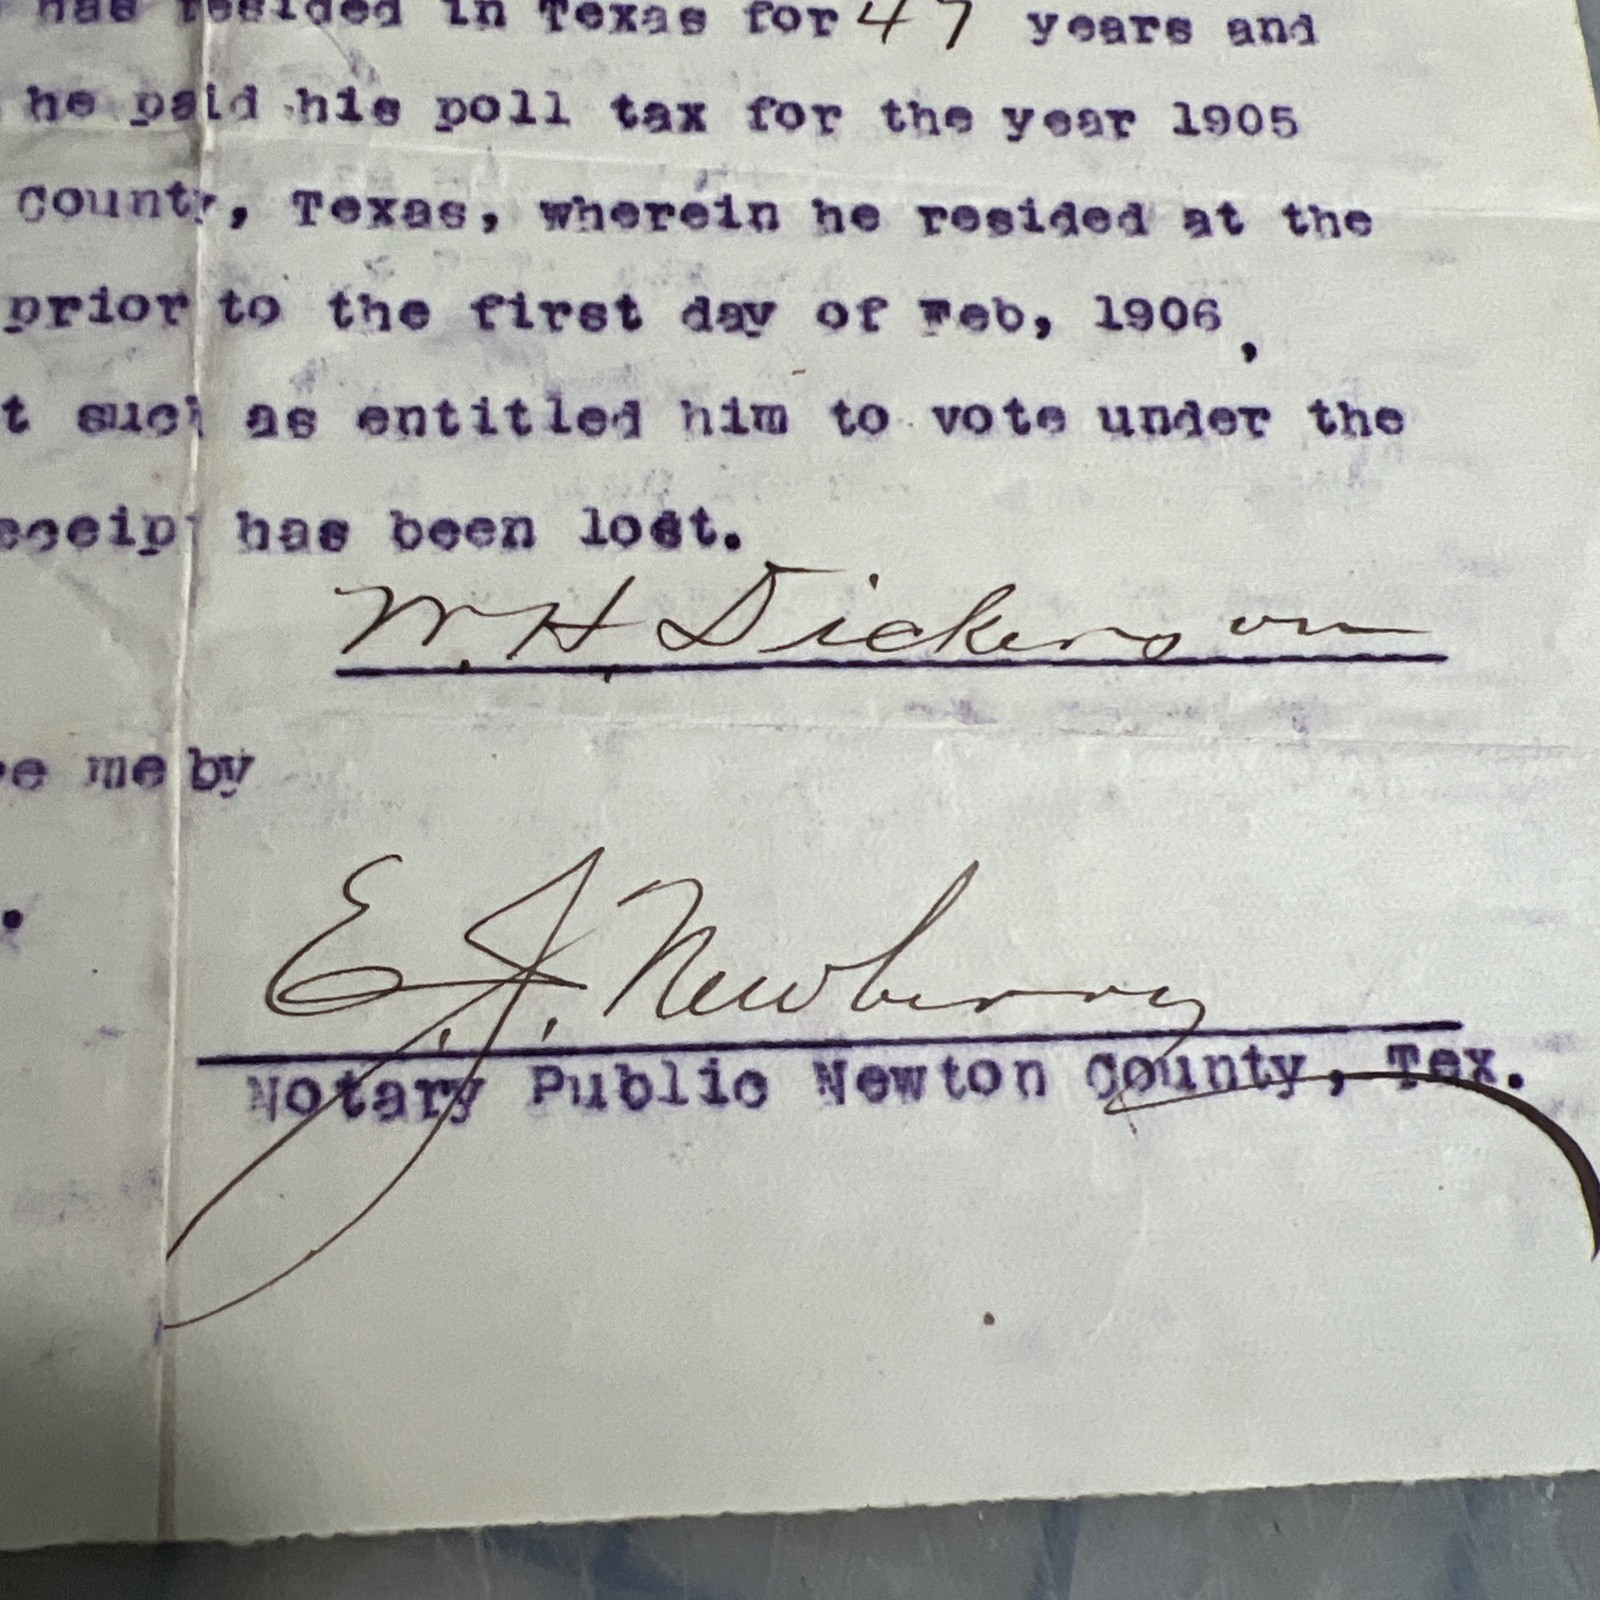 has resided in Texas for 47 years and
he paid his poll tax for the year 1905
County, Texas, wherein he resided at the
prior to the first day of Feb, 1906,
t such as entitled him to vote under the
eceipt has been lost.
W. H. Dickerson
re me by
E. J. Newberry
Notary Public Newton County, Tex.